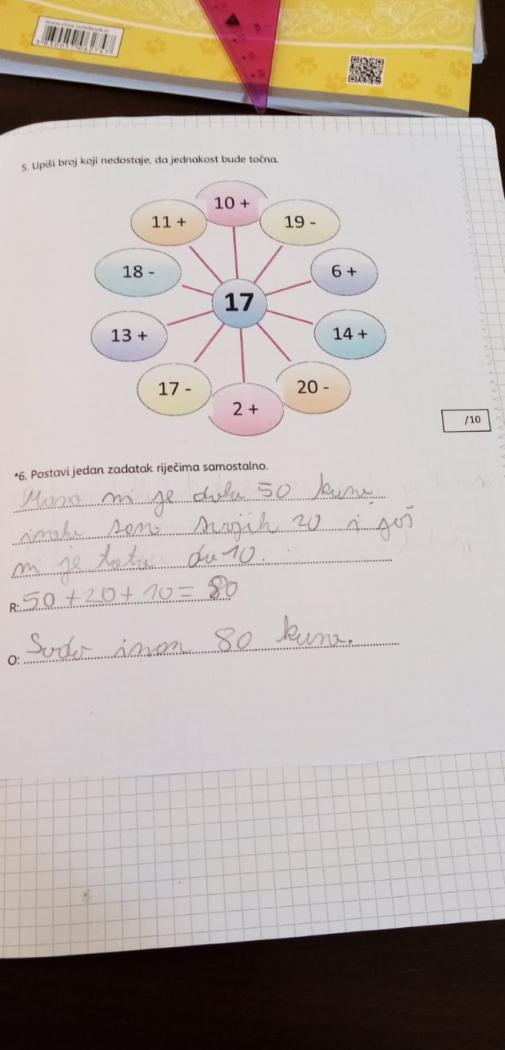 5. Upiši broj koji nedostaje, da jednakost bude točna.
10 +
11 +
19 -
18 -
6 +
17
13 +
14 +
17 -
20 -
2 +
/10
*6. Postavi jedan zadatak riječima samostalno.
Mama mi je dala 50 kuna
imala sam svojih 20 i još
mi je tata da 10.
R: 50 + 20 + 10 = 80
O: Sada imam 80 kuna.